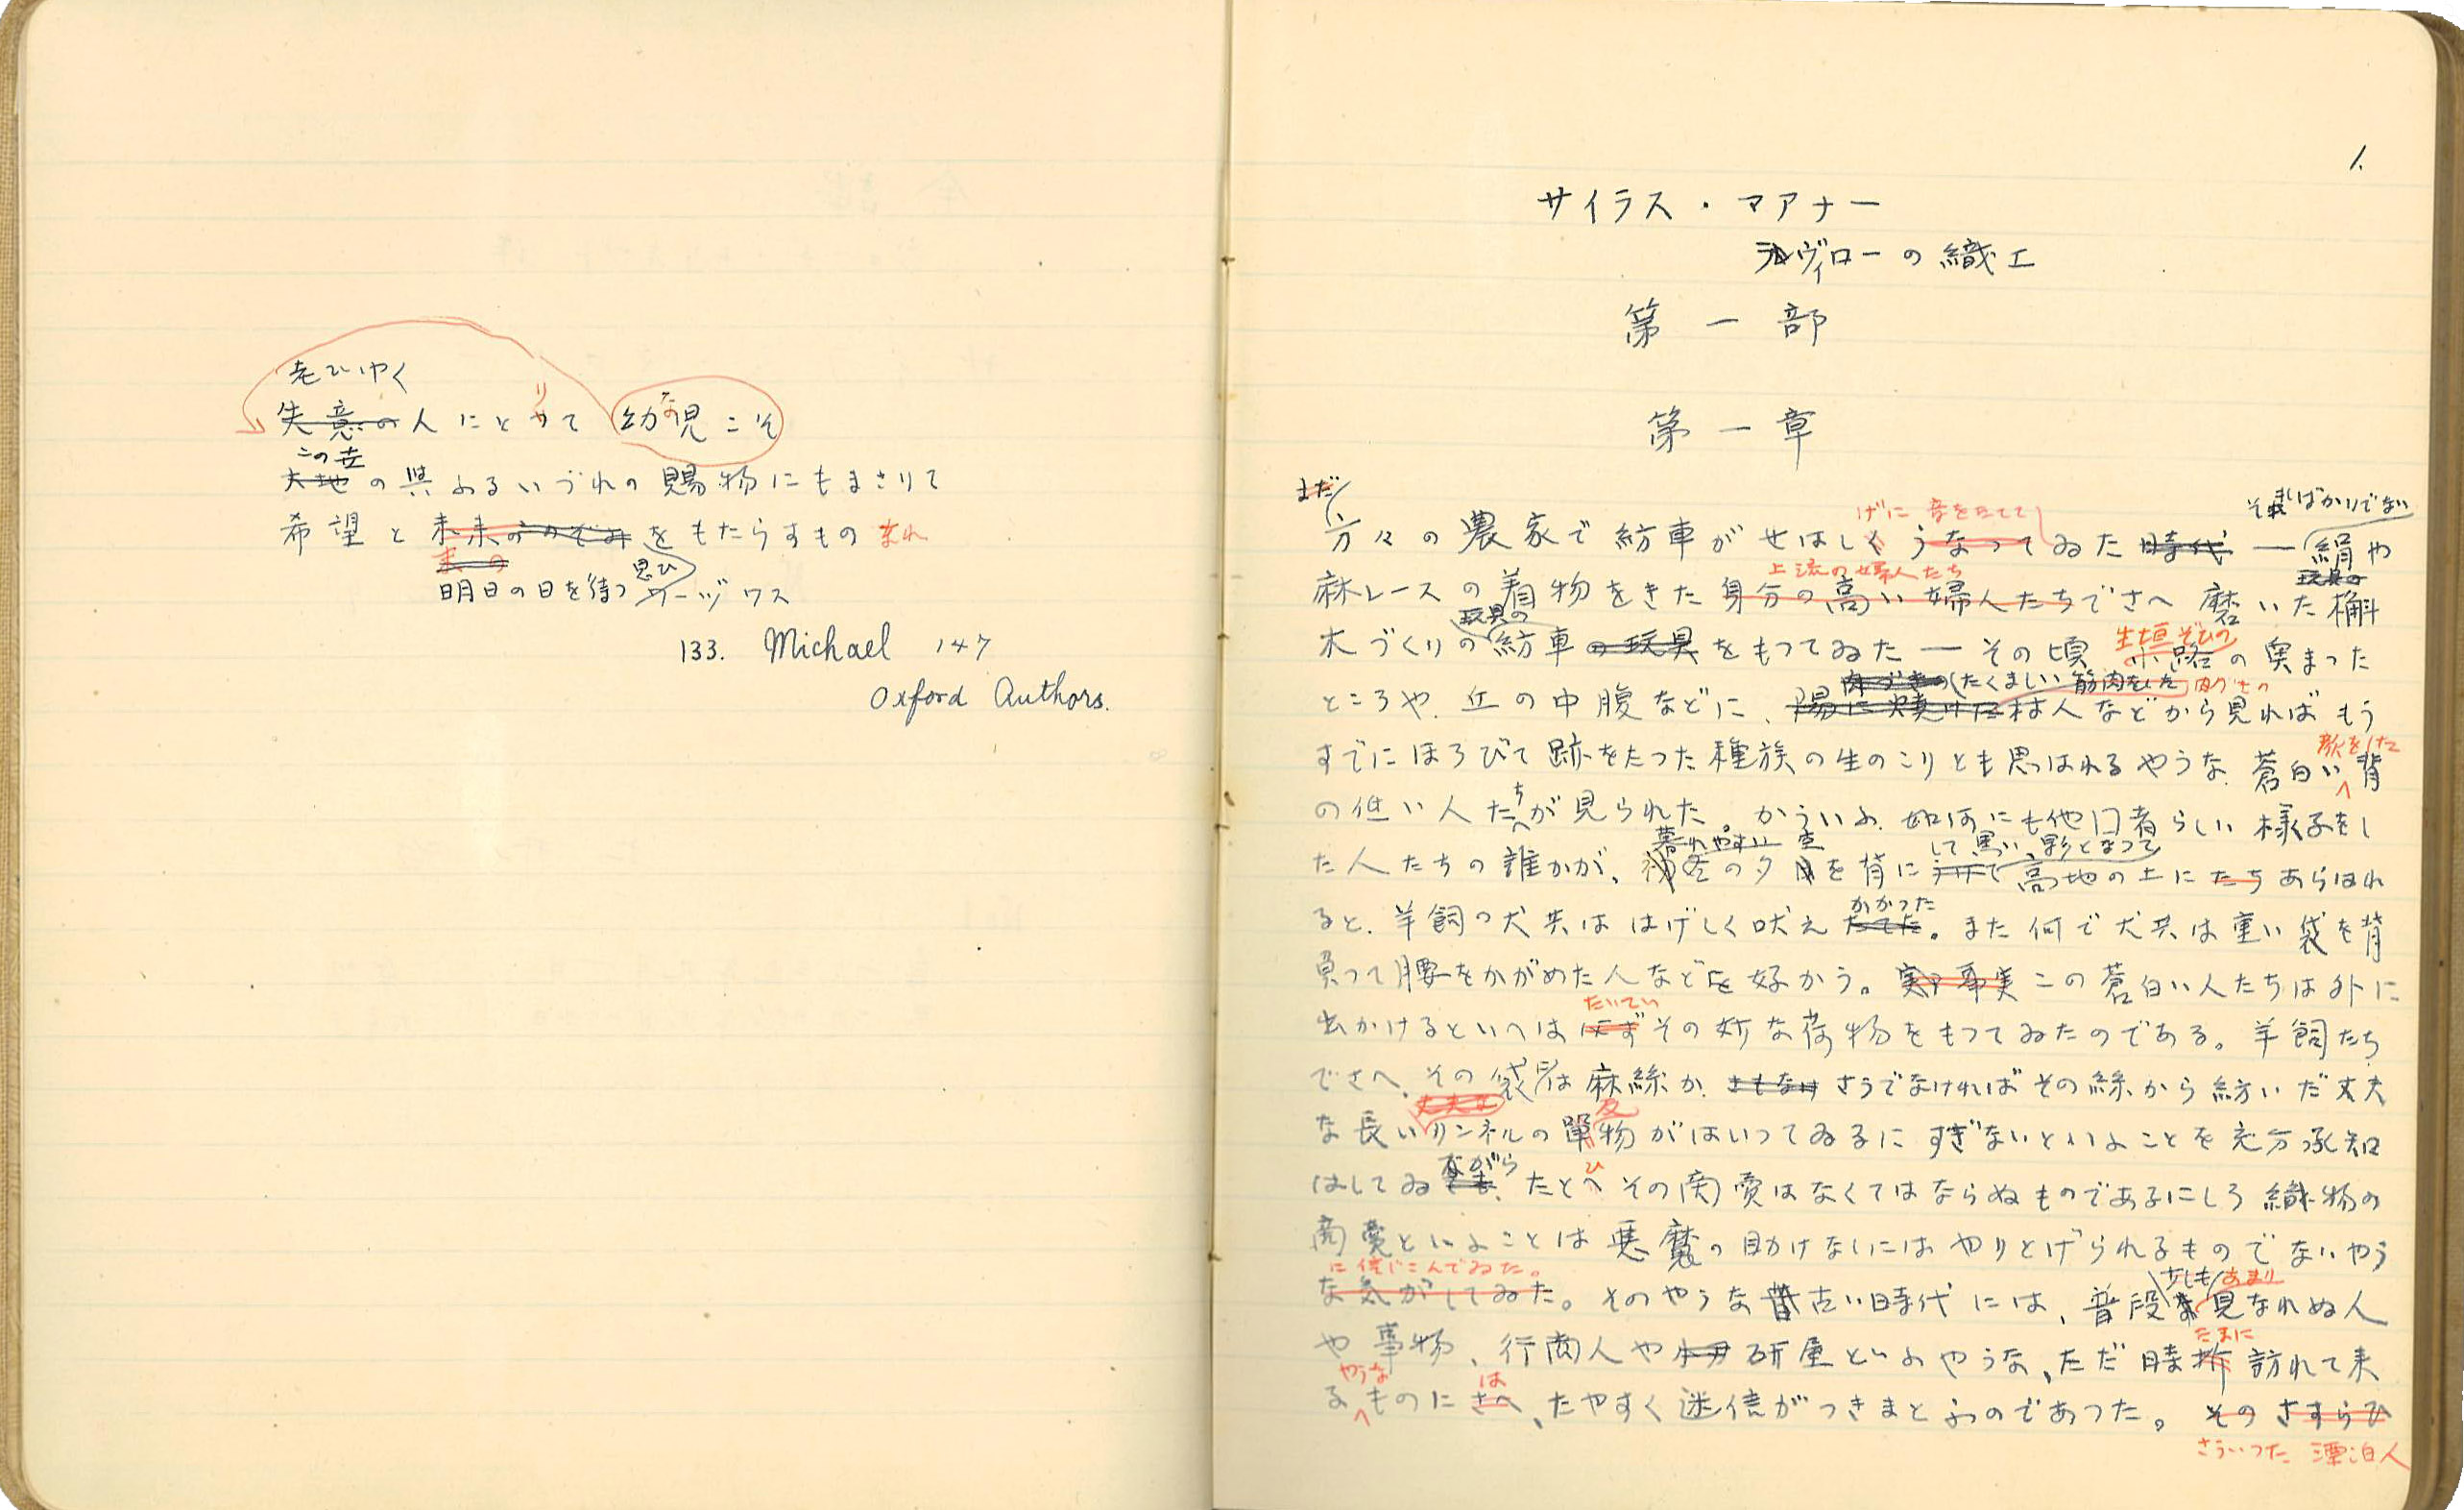 老ひゆく
失意の人にとりて 幼な児こそ
この世
大地の與ふるいづれの賜物にもまさりて
希望と未来ののぞみをもたらすもの なれ
来の
明日の日を待つ 思ひ ワーヅワス
133. Michael 147
Oxford Authors.
1.
サイラス・マアナー
ラヴィローの織工
第一部
第一章
まだ
そればかりでない
げに音をたてて
方々の農家で紡車がせはしくうなつてゐた時代 — 絹や
上流の婦人たち
玩具の
麻レースの着物をきた身分の高い婦人たちでさへ 磨いた槲
玩具の
生垣ぞひの
木づくりの紡車の玩具をもつてゐた — その頃 小路の奥まつた
肉づきの たくましい筋肉をした 肉づきの
ところや、丘の中腹などに、陽に焼けた村人などから見れば もう
顔をした
すでにほろびて跡をたつた種族の生のこりとも思はれるやうな、蒼白い背
の低い人たちが見られた。かういふ、如何にも他国者らしい様子をし
暮れやすい 空 して黒い影となつて
た人たちの誰かが、初冬の夕を背に 高地の上にたちあらはれ
かかつた
ると、羊飼の犬共は はげしく吠えたてた。また何で犬共は重い袋を背
負つて腰をかがめた人などを好かう。事実この蒼白い人たちは外に
たいてい
出かけるといへば必ずその妙な荷物をもつてゐたのである。羊飼たち
でさへ、その袋は麻絲か、さもなければさうでなければその絲から紡いだ丈夫
丈夫な 反
な長いリンネルの単物がはいつてゐるに すぎないといふことを充分承知
ながら ひ
はしてゐ たとへ その商賣はなくてはならぬものであるにしろ 織物の
商賣といふことは悪魔の助けなしにはやりとげられるものでないやう
に信じこんでゐた。
少しも あまり
な気がしてゐた。そのやうな昔古い時代には、普段 見なれぬ人
たまに
や事物、行商人や 研屋といふやうな、ただ時折訪れて来
やうな は
るものにさへ、たやすく迷信がつきまとふのであつた。そのさすらひ
さういつた 漂泊人